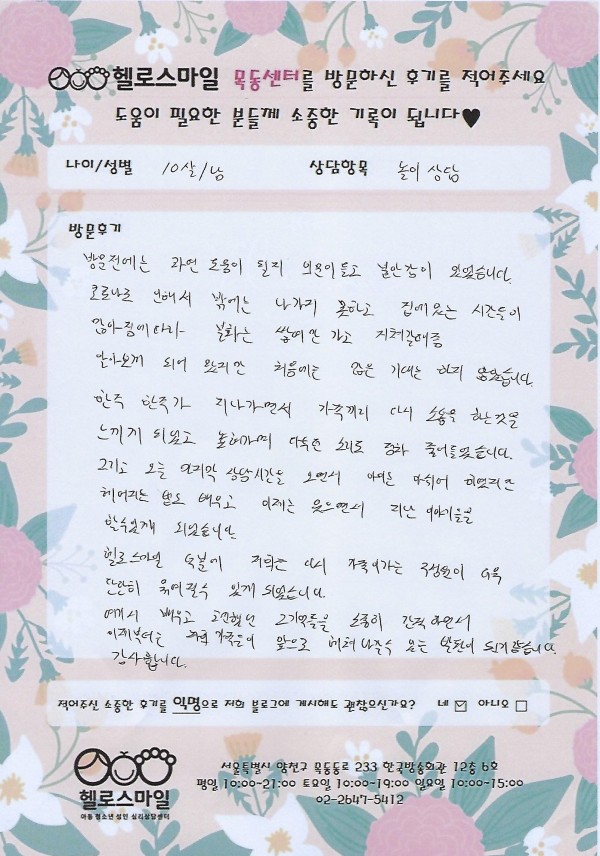 헬로스마일 목동센터를 방문하신 후기를 적어주세요
도움이 필요한 분들께 소중한 기록이 됩니다♥
나이/성별 10살/남 상담항목 놀이 상담
방문후기
방문전에는 과연 도움이 될지 의문이들고 불안감이 있었습니다.
코로나로 인해서 밖에는 나가지 못하고 집에있는 시간들이
많아짐에따라 불화는 쌓여만 가고 지쳐갈때쯤
알아보게 되어 왔지만 처음에는 많은 기대는 하지 않았습니다.
한주 한주가 지나가면서 가족끼리 다시 소통을 하는것을
느끼게 되었고 높혀가며 다투던 소리도 점차 줄어들었습니다.
그리고 오늘 마지막 상담시간을 오면서
헤어지는 법도 배우고 이제는 웃으면서 지난 이야기들을
할수있게 되었습니다
헬로스마일 덕분에 저희는 다시 가족이라는 구성원이 더욱
단단히 묶여질수 있게 되었습니다.
여기서 배우고 고민했던 그기억들을 소중히 간직하면서
이제부터는 저희 가족들이 앞으로 헤쳐나갈수 있는 발판이 되기같습니다.
감사합니다.
적어주신 소중한 후기를 익명으로 저희 블로그에 게시해도 괜찮으신가요? 네 ☑ 아니오 □
헬로스마일
아동 청소년 성인 심리상담센터
서울특별시 양천구 목동동로 233 한국방송회관 12층 6호
평일 10:00-21:00 토요일 10:00-19:00 일요일 10:00-15:00
02-2647-5412